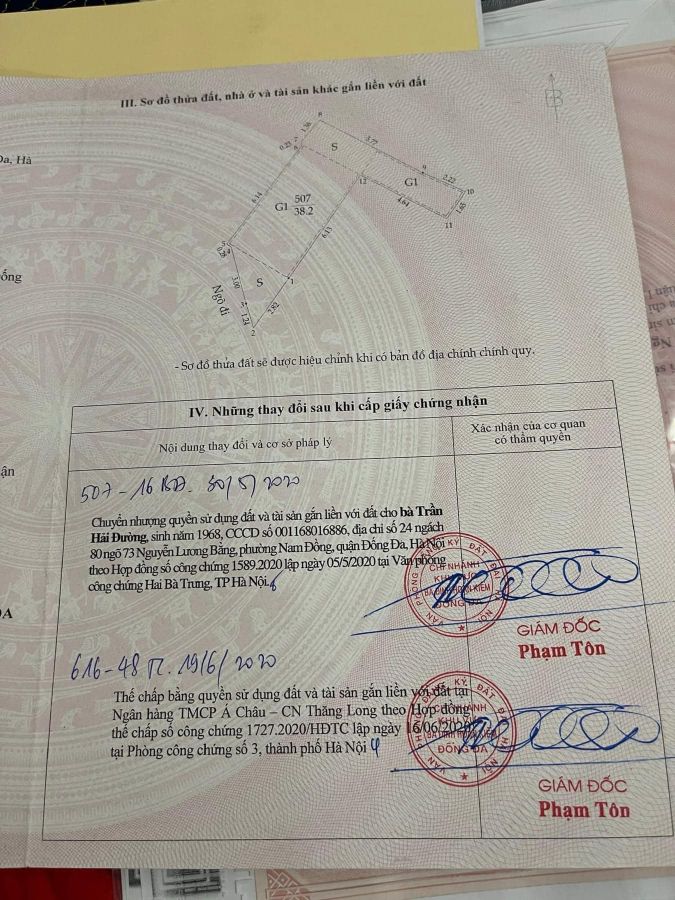 III. Sơ đồ thửa đất, nhà ở và tài sản khác gắn liền với đất
B
Đa, Hà
8
1.36
7
0.23
6
S
3.77
9
G1
2.22
10
1.65
11
4.64
12
6.14
G1 507
38.2
6.13
5
4
3.00
S
1
3
1.24
2.82
2
Ngõ đi
ống
- Sơ đồ thửa đất sẽ được hiệu chỉnh khi có bản đồ địa chính chính quy.
IV. Những thay đổi sau khi cấp giấy chứng nhận
Nội dung thay đổi và cơ sở pháp lý
Xác nhận của cơ quan
có thẩm quyền
ận
507-16 BĐ. 30/5/2020
Chuyển nhượng quyền sử dụng đất và tài sản gắn liền với đất cho bà Trần
Hải Đường, sinh năm 1968, CCCD số 001168016886, địa chỉ số 24 ngách
80 ngõ 73 Nguyễn Lương Bằng, phường Nam Đồng, quận Đống Đa, Hà Nội
theo Hợp đồng số công chứng 1589.2020 lập ngày 05/5/2020 tại Văn phòng
công chứng Hai Bà Trưng, TP Hà Nội.
VĂN PHÒNG ĐĂNG KÝ ĐẤT ĐAI HÀ NỘI
CHI NHÁNH
ĐỐNG ĐA
GIÁM ĐỐC
Phạm Tôn
ĐA
616-48 17. 19/6/2020
Thế chấp bằng quyền sử dụng đất và tài sản gắn liền với đất tại
Ngân hàng TMCP Á Châu – CN Thăng Long theo Hợp đồng
thế chấp số công chứng 1727.2020/HĐTC lập ngày 16/06/2020
tại Phòng công chứng số 3, thành phố Hà Nội
VĂN PHÒNG ĐĂNG KÝ ĐẤT ĐAI HÀ NỘI
CHI NHÁNH
ĐỐNG ĐA
GIÁM ĐỐC
Phạm Tôn